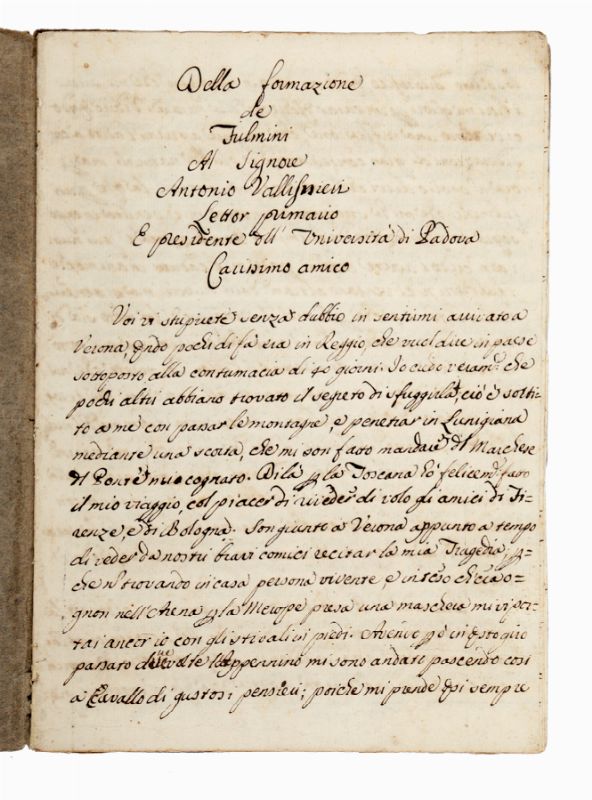 Della formazione
de
Fulmini
Al Signore
Antonio Vallisnieri
Lettor primario
E presidente dll' Università di Padova
Carissimo amico
Voi vi stupirete senza dubbio in sentirmi arrivato a
Verona, qndo pochi dì fà era in Reggio, che vuol dire in paese
sottoposto alla contumacia di 40 giorni. Io credo veram.e che
pochi altri abbiano trovato il segreto di sfuggirla, ciò è sorti-
to a me con passar le montagne, e penetrar in Lunigiana
mediante una scorta, che mi son fatto mandare dl Marchese
dl Ponte mio cognato. Di là p la Toscana hò felicem.e fatto
il mio viaggio, col piacer di riveder di volo gli amici di Fi-
renze, e di Bologna. Son giunto a Verona appunto a tempo
di veder da nostri bravi comici recitar la mia Tragedia, p-
che nō trovando in casa persona vivente, e inteso ch'era o-
gnon nell'Arena p la Merope presa una maschera mi vi por-
tai ancor io con gli stivali in piedi. Avendo pò in qsto giro
passato due volte l'Appennino mi sono andato pascendo così
a Cavallo di gustosi pensieri; poiche mi prende qsi sempre